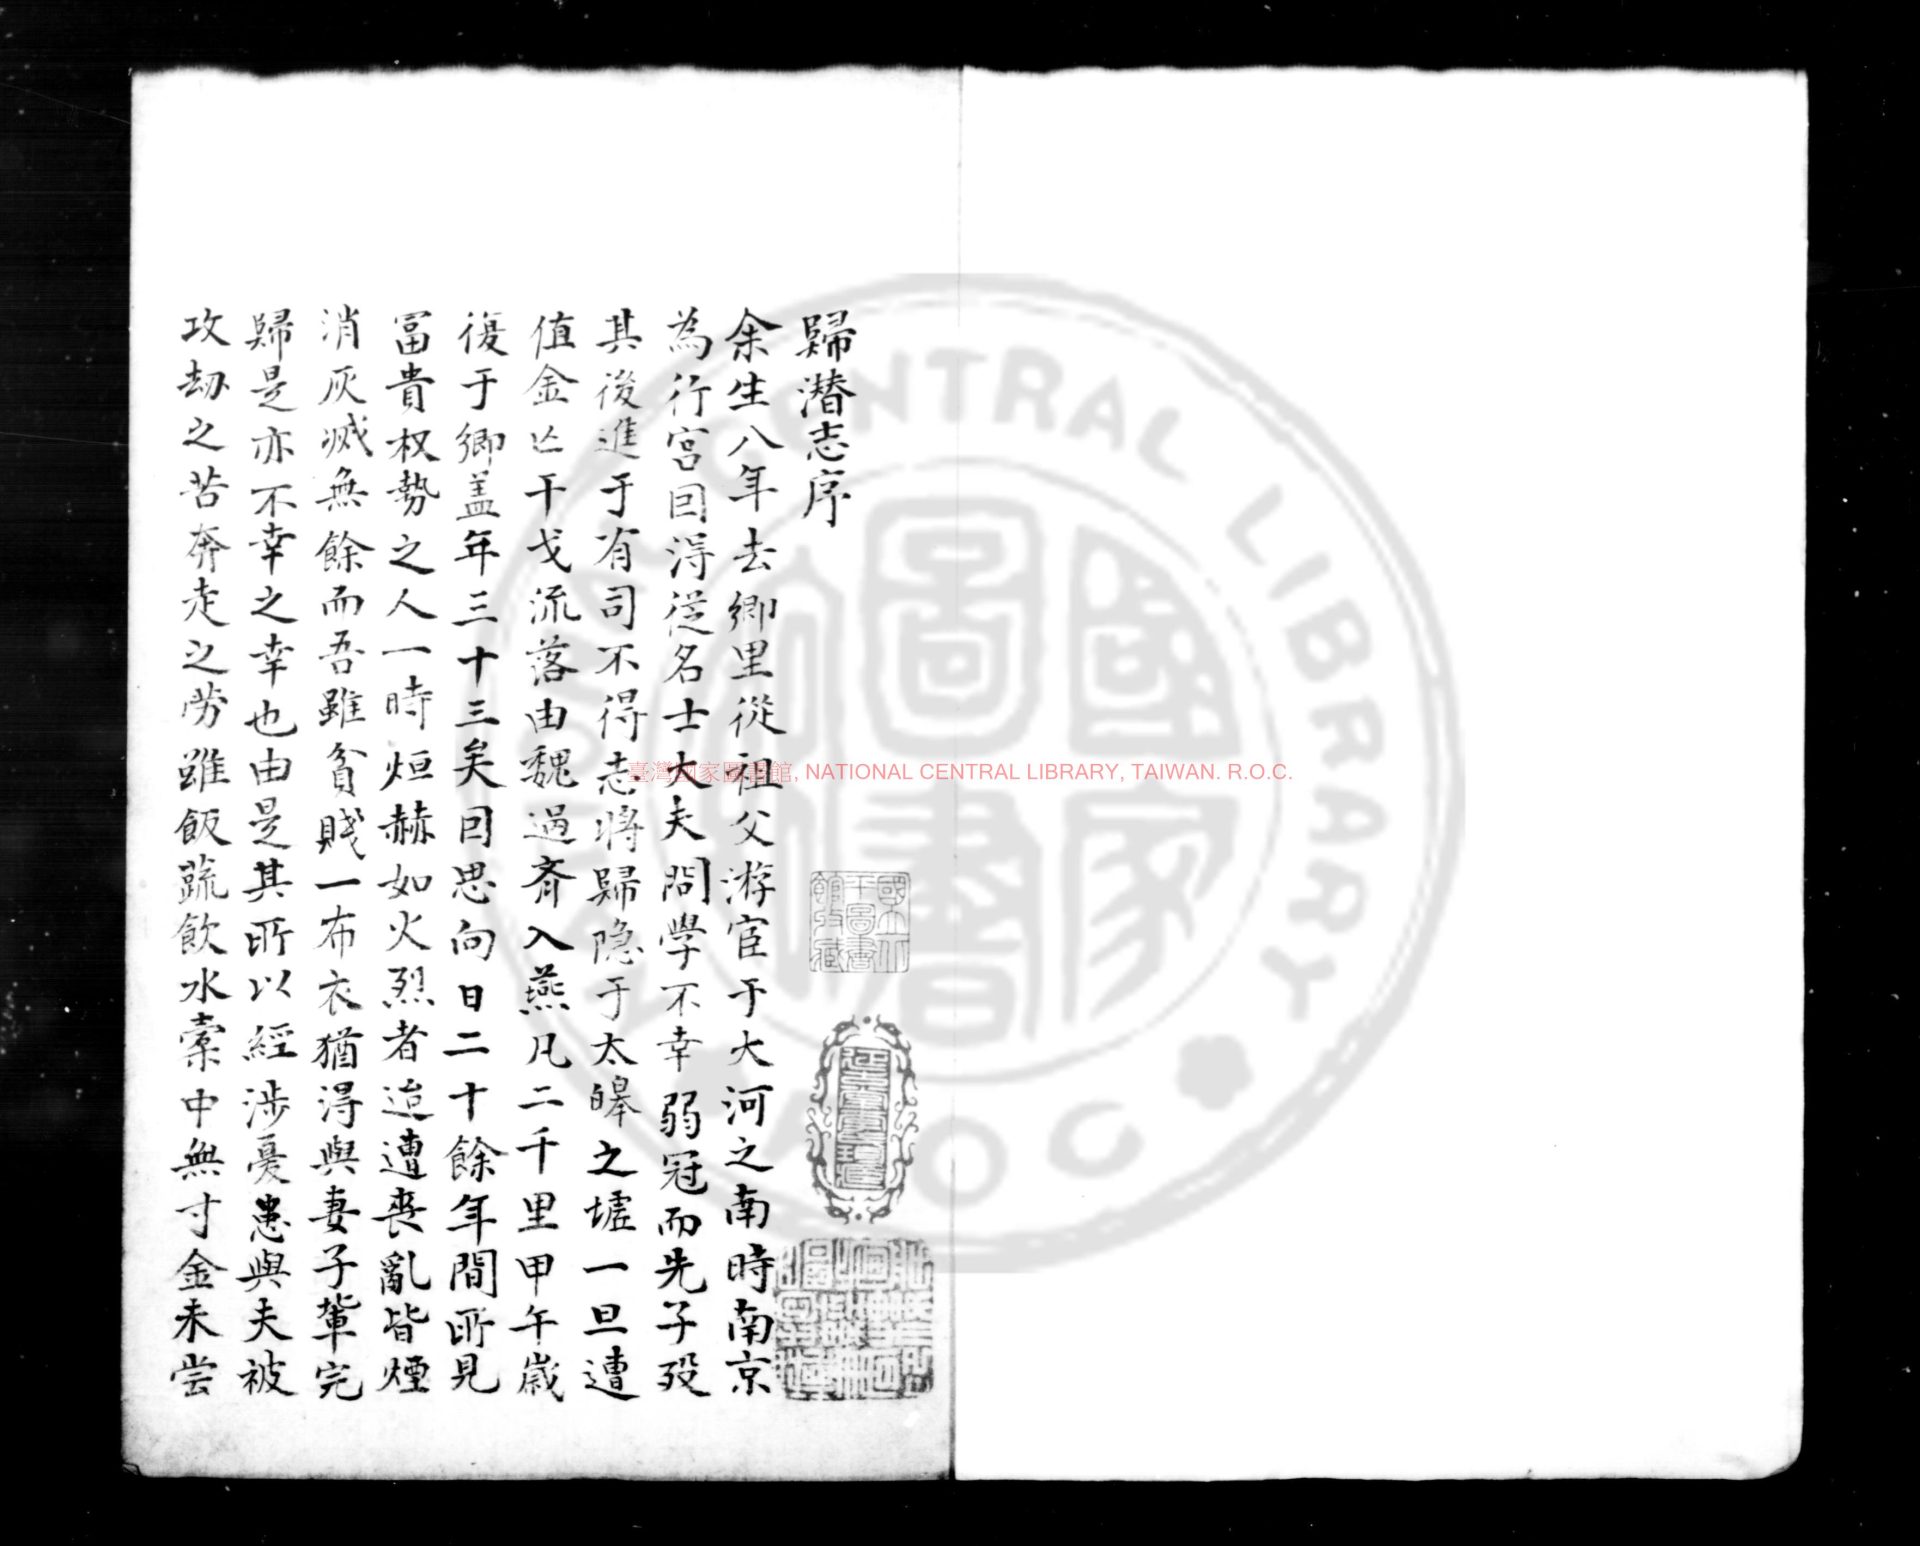 歸潛志序
余生八年去鄉里從祖父游宦于大河之南時南京
為行宮因淂從名士大夫問學不幸弱冠而先子歿
其後進于有司不得志將歸隱于太皞之墟一旦遭
值金亡干戈流落由魏過齊入燕凡二千里甲午歲
復于鄉盖年三十三矣因思向日二十餘年間所見
富貴权勢之人一時烜赫如火烈者迨遭喪亂皆煙
消灰滅無餘而吾雖貧賤一布衣猶淂與妻子輩完
歸是亦不幸之幸也由是其所以經涉憂患與夫被
攻劫之苦奔走之劳雖飯蔬飲水橐中無寸金未尝
國立北
平圖書
館收藏
臺灣國家圖書館, NATIONAL CENTRAL LIBRARY, TAIWAN. R.O.C.
NATIONAL CENTRAL LIBRARY
R.O.C.
國家圖書館